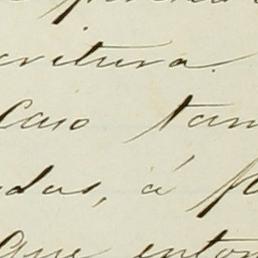 critura.
Caso tam
das, á f
que enton